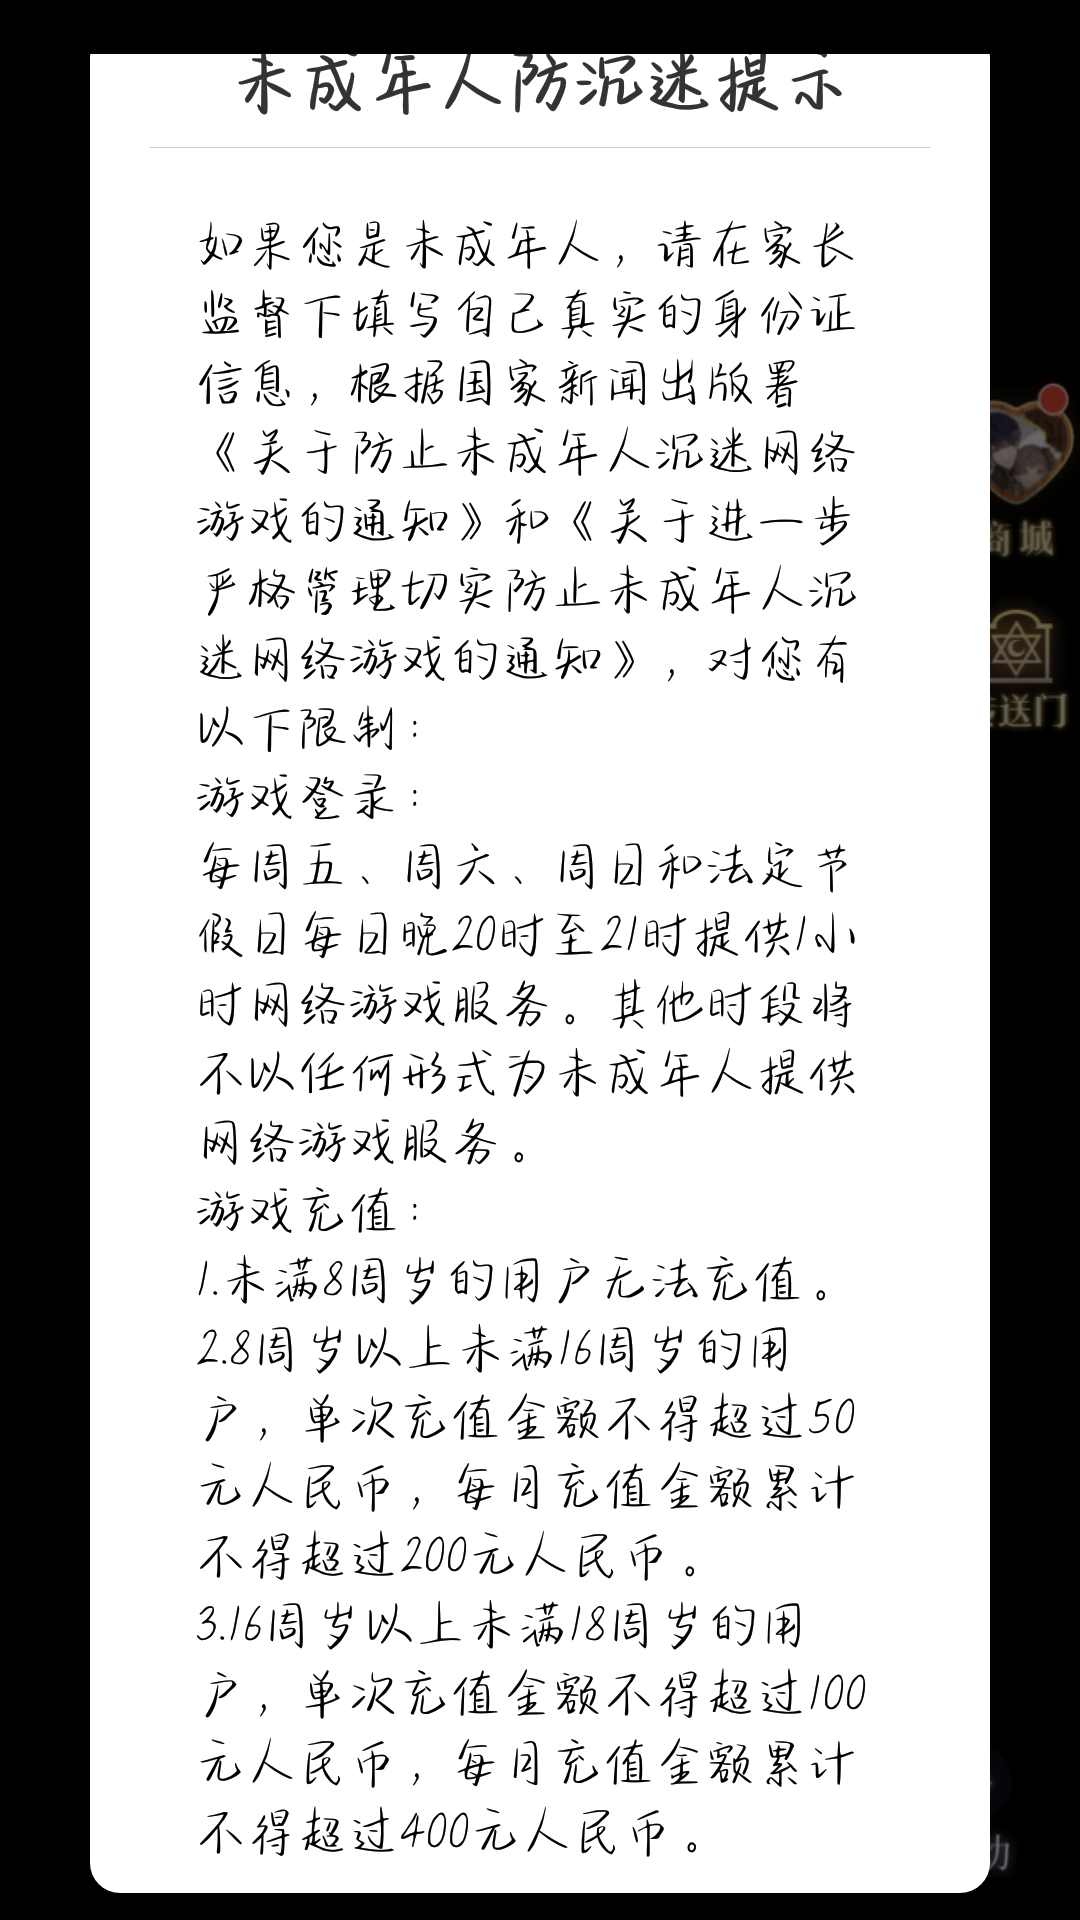 未成年人防沉迷提示
如果您是未成年人，请在家长
监督下填写自己真实的身份证
信息，根据国家新闻出版署
《关于防止未成年人沉迷网络
游戏的通知》和《关于进一步
严格管理切实防止未成年人沉
迷网络游戏的通知》，对您有
以下限制：
游戏登录：
每周五、周六、周日和法定节
假日每日晚20时至21时提供1小
时网络游戏服务。其他时段将
不以任何形式为未成年人提供
网络游戏服务。
游戏充值：
1.未满8周岁的用户无法充值。
2.8周岁以上未满16周岁的用
户，单次充值金额不得超过50
元人民币，每月充值金额累计
不得超过200元人民币。
3.16周岁以上未满18周岁的用
户，单次充值金额不得超过100
元人民币，每月充值金额累计
不得超过400元人民币。
商城
传送门